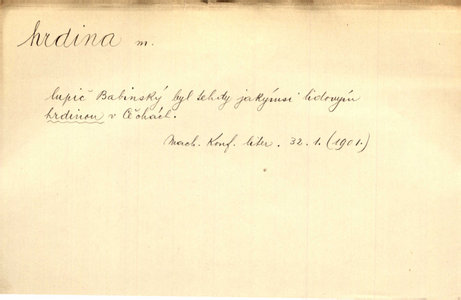 hrdina m.
lupič Babinský byl tehdy jakýmsi lidovým
hrdinou v Čechách.
Mach. Konf. liter. 32. 1. (1901.)